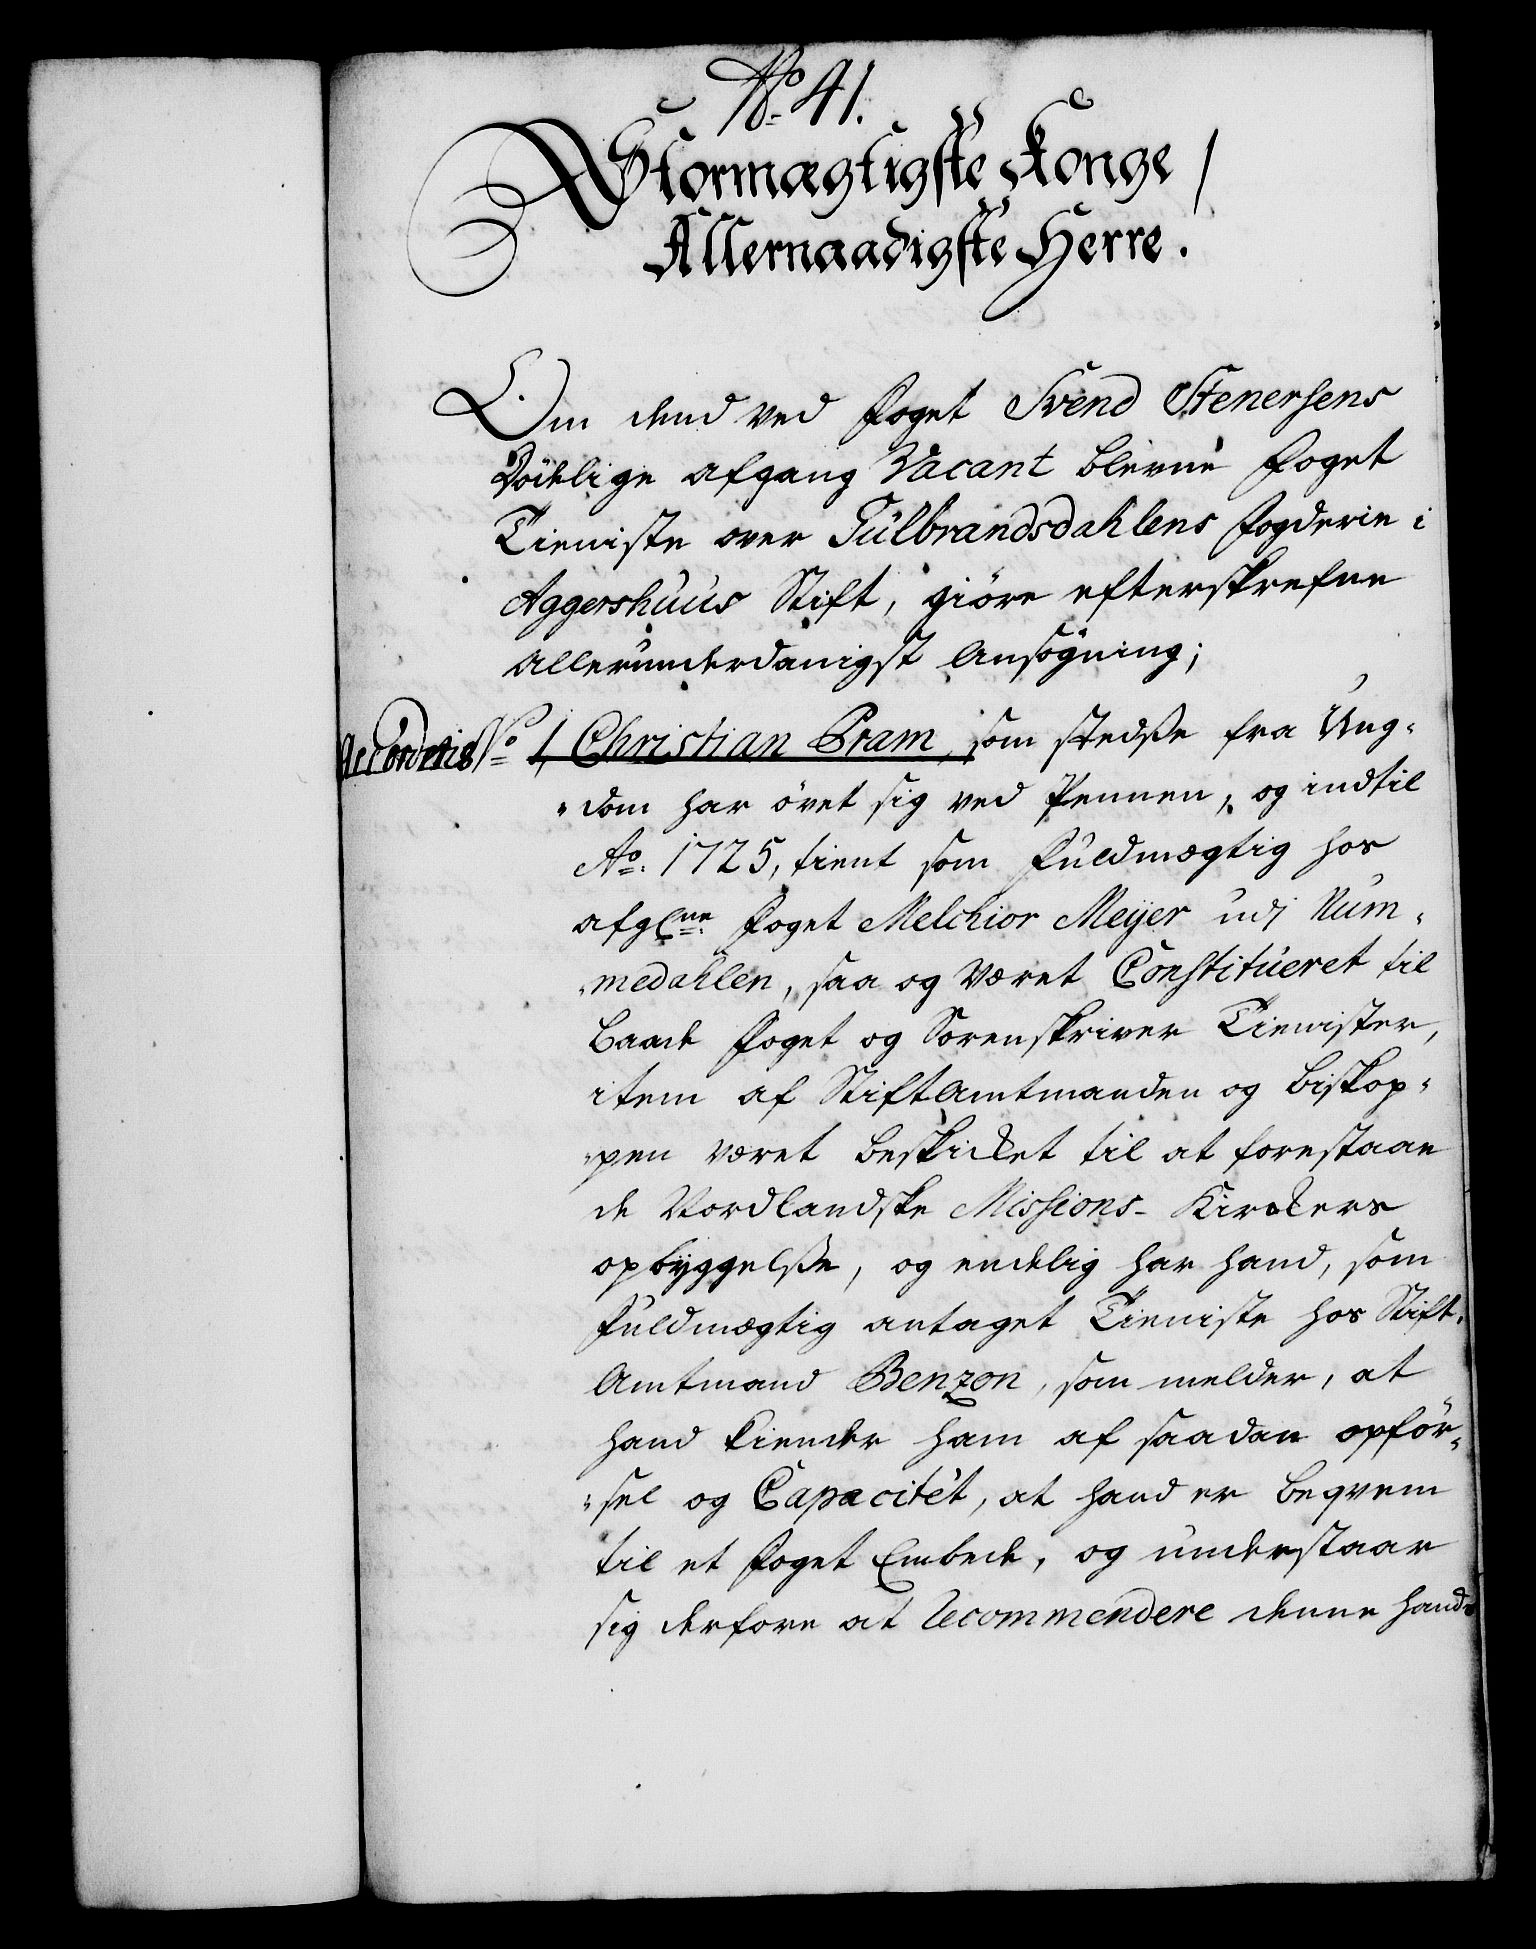 No. 41.
Stormægtigste Konge /
Allernaadigste Herre.
Om dend ved Foget Svend Stenersens
Dödelige afgang Vacant blevne Foget
Tieniste over Gülbrandsdahlens Fogderie i
Aggershuus Stift, giöre efterskrefne
allerunderdanigst Ansögning;
Accorderis No 1, Christian Pram, som stedsse fra Ung-
dom har övet sig ved Pennen, og indtil
Ao. 1725, tient som Fuldmægtig hos
afgl. Foget Melchior Meijer udj Num-
medahlen, saa og været Constitueret til
baade Foget og Sorenskriver Tienister,
item af Stiftamtmanden og Biskop-
pen været beskicket til at forestaae
de Nordlandske Missions-Kirckers
opbyggelsse, og endelig har hand, som
Fuldmægtig antaget Tieniste hos Stift-
Amtmand Benzon, som melder, at
hand kiender ham af saadan opför-
sel og Capacitét, at hand er beqvem
til et Foget Embede, og understaar
sig derfore at Recommendere denne hands